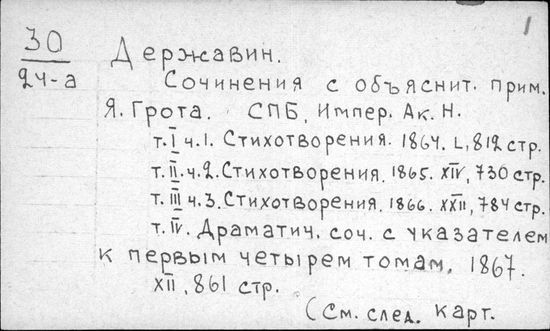 1
30
24-а
Державин.
Сочинения с объяснит. прим.
Я. Грота. СПБ, Импер. Ак. Н.
т. I ч. 1. Стихотворения. 1864. L, 812 стр.
т. II. ч. 2. Стихотворения. 1865. XIV, 730 стр.
т. III ч. 3. Стихотворения. 1866. XXII, 784 стр.
т. IV. Драматич. соч. с указателем
к первым четырем томам. 1867.
XII, 861 стр.
(См. след. карт.